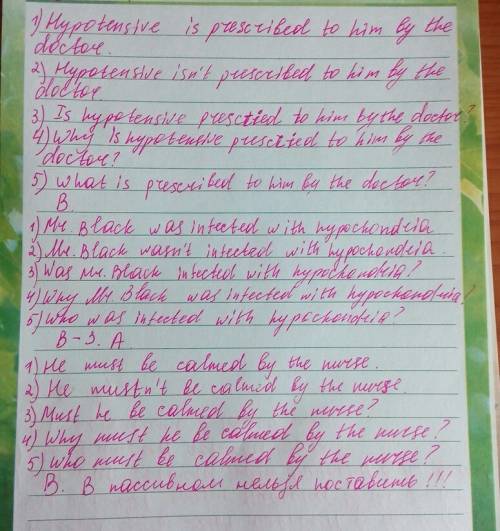 1) Hypotensive is prescribed to him by the
doctor.
2) Hypotensive isn't prescribed to him by the
doctor
3) Is hypotensive presctied to him by the doctor?
4) Why is hypotensive presctied to him by the
doctor?
5) What is prescribed to him by the doctor?
B.
1) Mr. Black was infected with hypochondria
2) Mr. Black wasn't infected with hypochondria.
3) Was Mr. Black infected with hypochondria?
4) Why Mr Black was infected with hypochondria?
5) Who was infected with hypochondria?
B-3. A.
1) He must be calmed by the nurse.
2) He mustn't be calmed by the nurse
3) Must he be calmed by the nurse?
4) Why must he be calmed by the nurse?
5) Who must be calmed by the nurse?
B. В пассивном нельзя поставить!!!